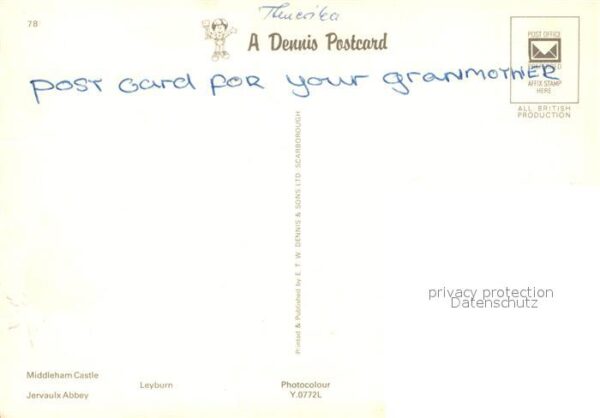 78
A Dennis Postcard
POST OFFICE
AFFIX STAMP
HERE
ALL BRITISH
PRODUCTION
post card for your granmother
Printed & Published by E. T. W. DENNIS & SONS LTD. SCARBOROUGH
privacy protection
Datenschutz
Middleham Castle
Leyburn
Jervaulx Abbey
Photocolour
Y.0772L